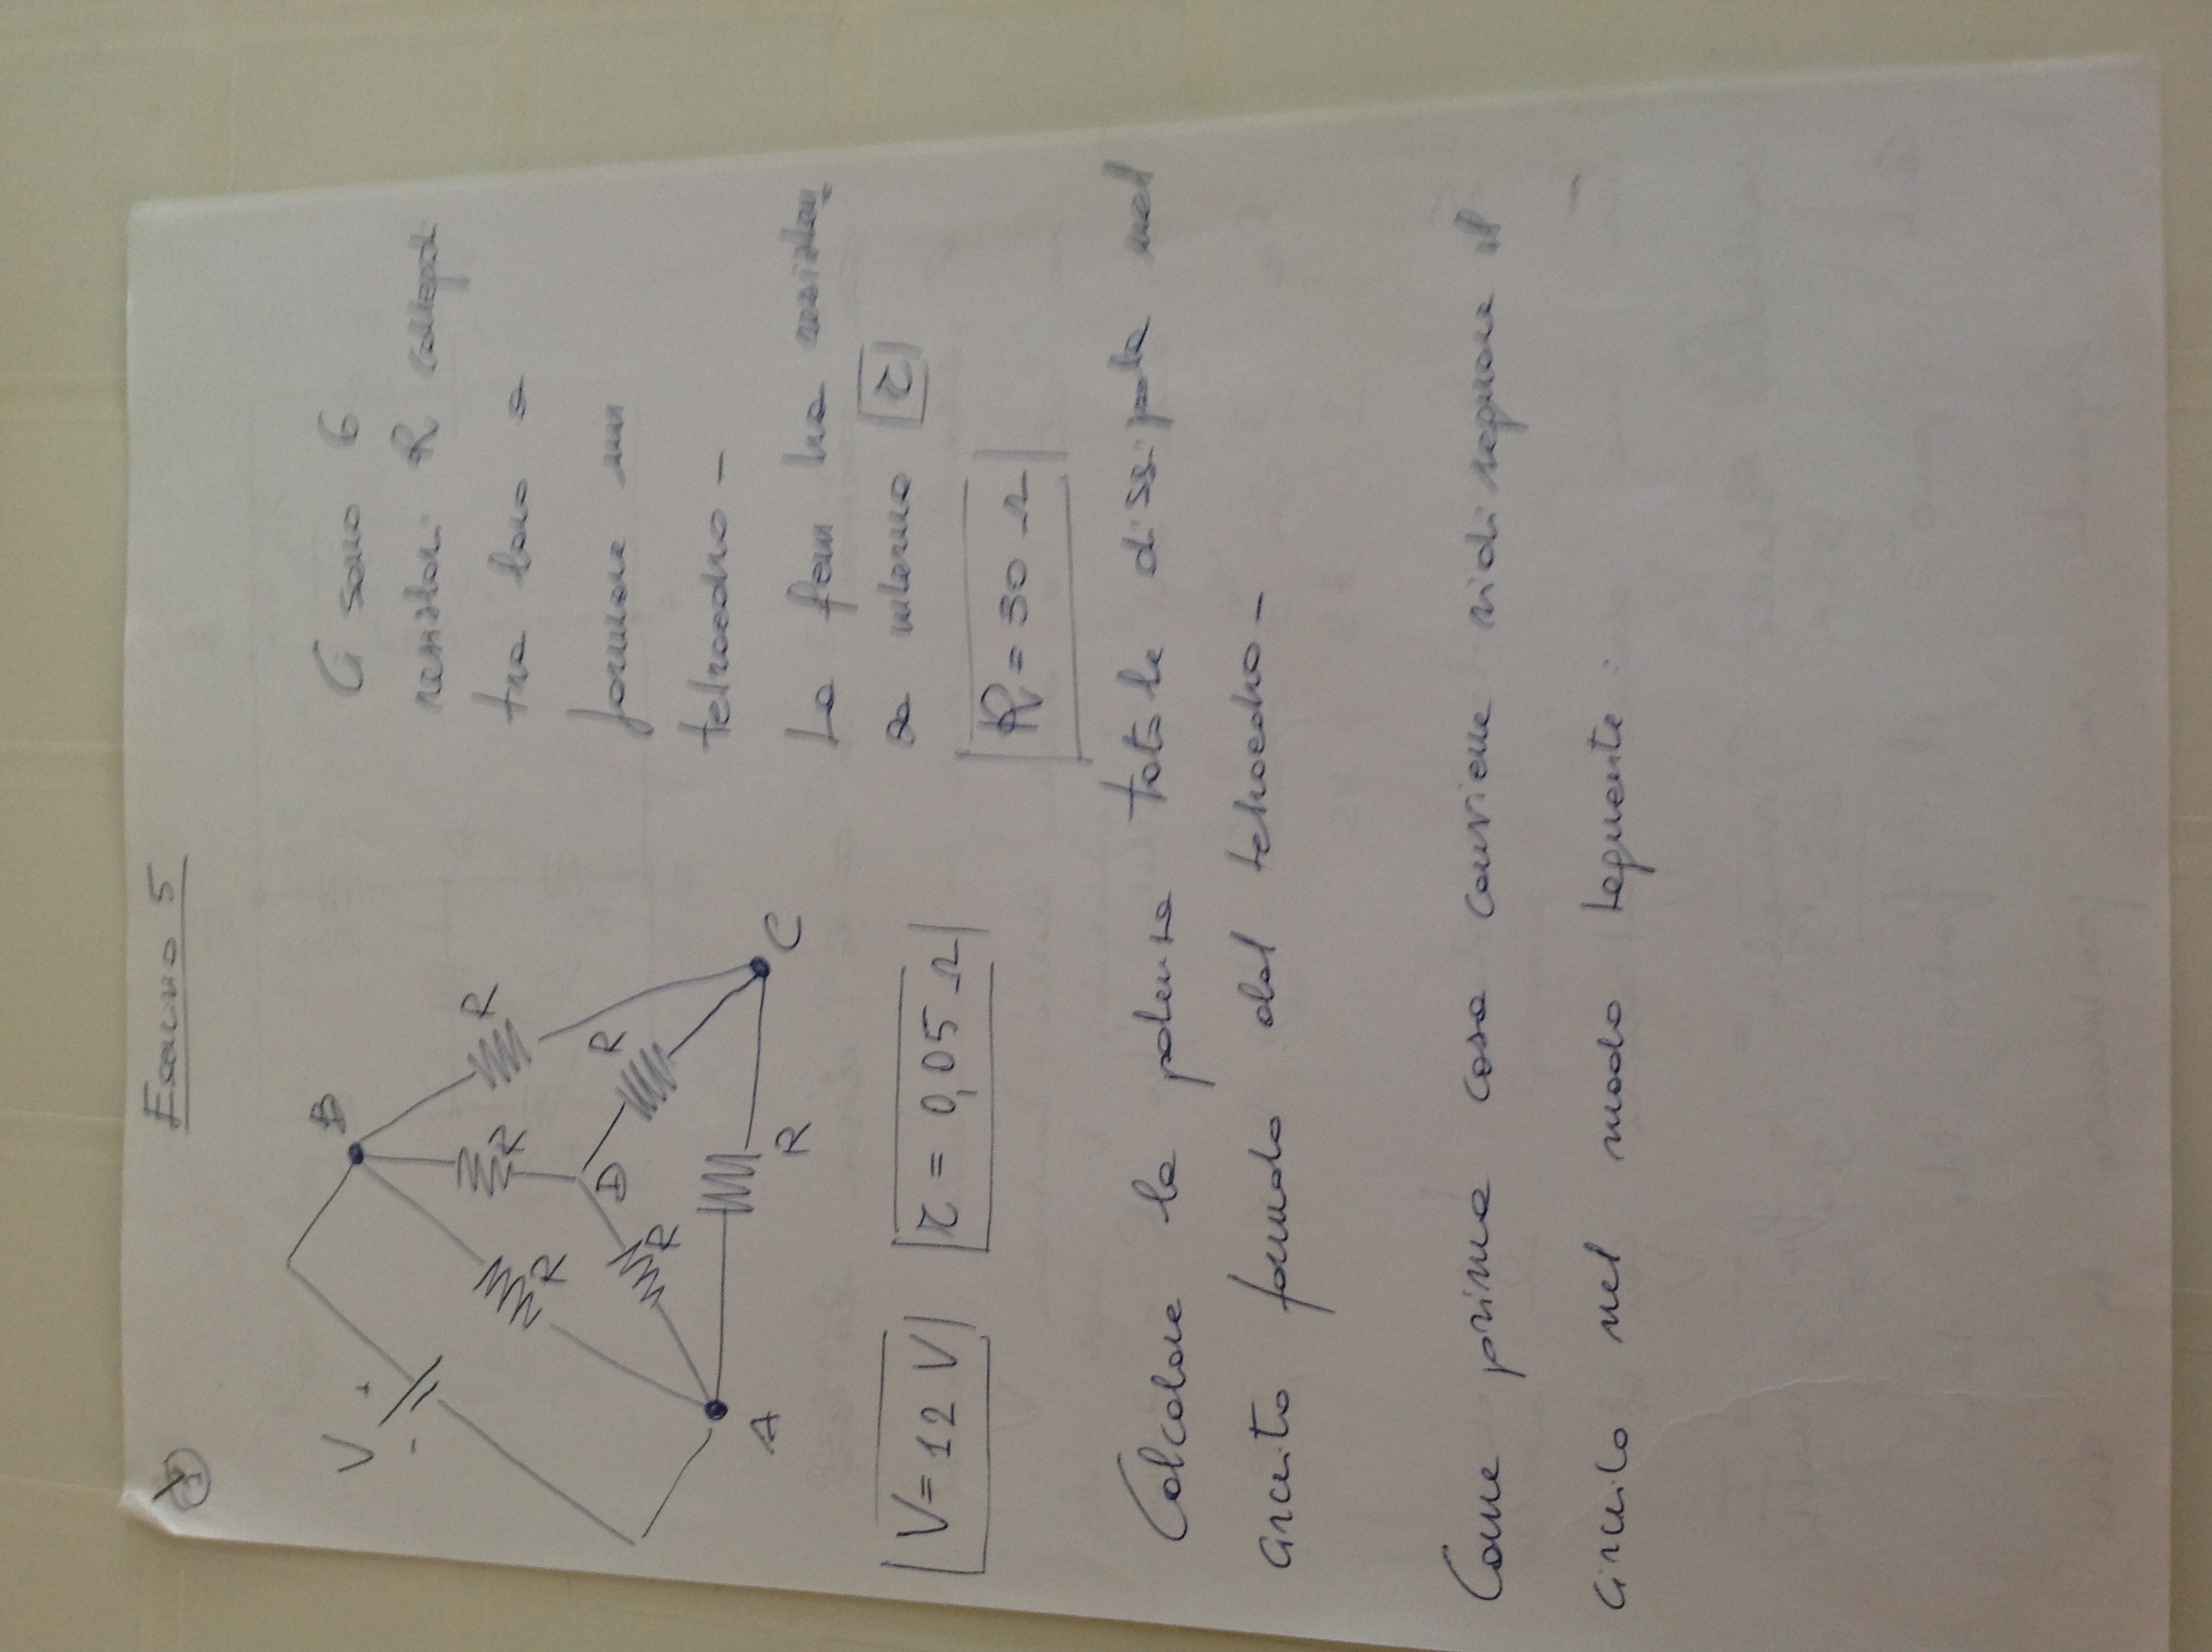 1
Esercizio 5
V
+
-
B
R
R
R
D
R
R
A
R
C
Ci sono 6
resistori R collegati
tra loro a
formare un
tetraedro -
La fem ha resisten
za interna r
V = 12 V
r = 0,05 Ω
R = 30 Ω
Calcolare la potenza totale dissipata nel
circuito formato dal tetraedro -
Come prima cosa conviene ridisegnare il
circuito nel modo seguente :